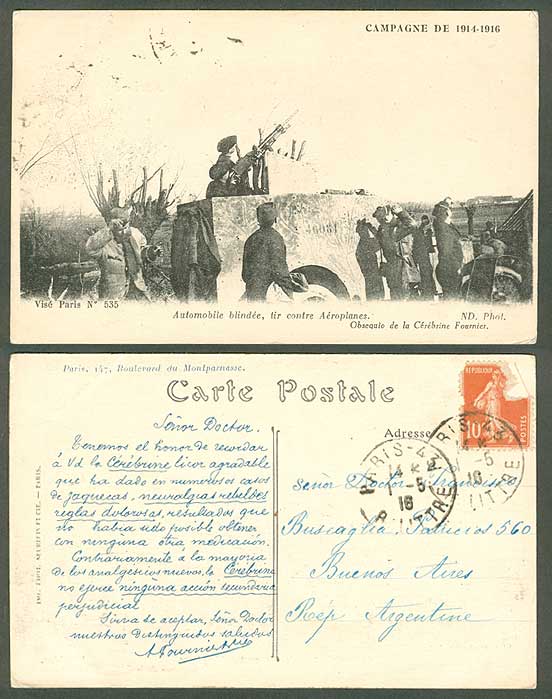 CAMPAGNE DE 1914-1916
46081
Visé Paris Nº 535
Automobile blindée, tir contre Aéroplanes.
ND. Phot.
Obsequio de la Cérébrine Fournier.
Paris, 147, Boulevard du Montparnasse.
Carte Postale
Adresse
REPUBLIQUE
10
POSTES
PARIS-43
14
1-5
16
R. LITTRE
PARIS-43
-5
16
LITTRE
Señor Doctor.
Tenemos el honor de recordar
á Vd la Cérébrine licor agradable
que ha dado en numerosos casos
de jaquecas, neuralgias rebeldes
reglas dolorosas, resultados que
no habia sido posible obtener
con ninguna otra medicación.
Contrariamente á la mayoria
de los analgésicos nuevos, la Cérébrina
no ejerce ninguna acción secundaria
perjudicial
Sirva de aceptar, Señor Doctor
nuestros distinguidos saludos
Señor Doctor
Buscaglia Patricios 560
Buenos Aires
Rép Argentine
PARIS.